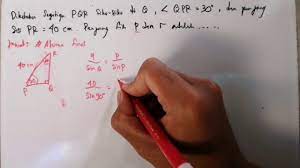 Diketahui Segitiga PQR Siku-Siku di Q, ∠QPR = 30°, dan panjang
sisi PR = 40 cm. Panjang sisi P dan r adalah
Jawab: # Aturan Sinus
R
40 cm
P
Q
q/sin Q = P/sin P
40/sin 90° =